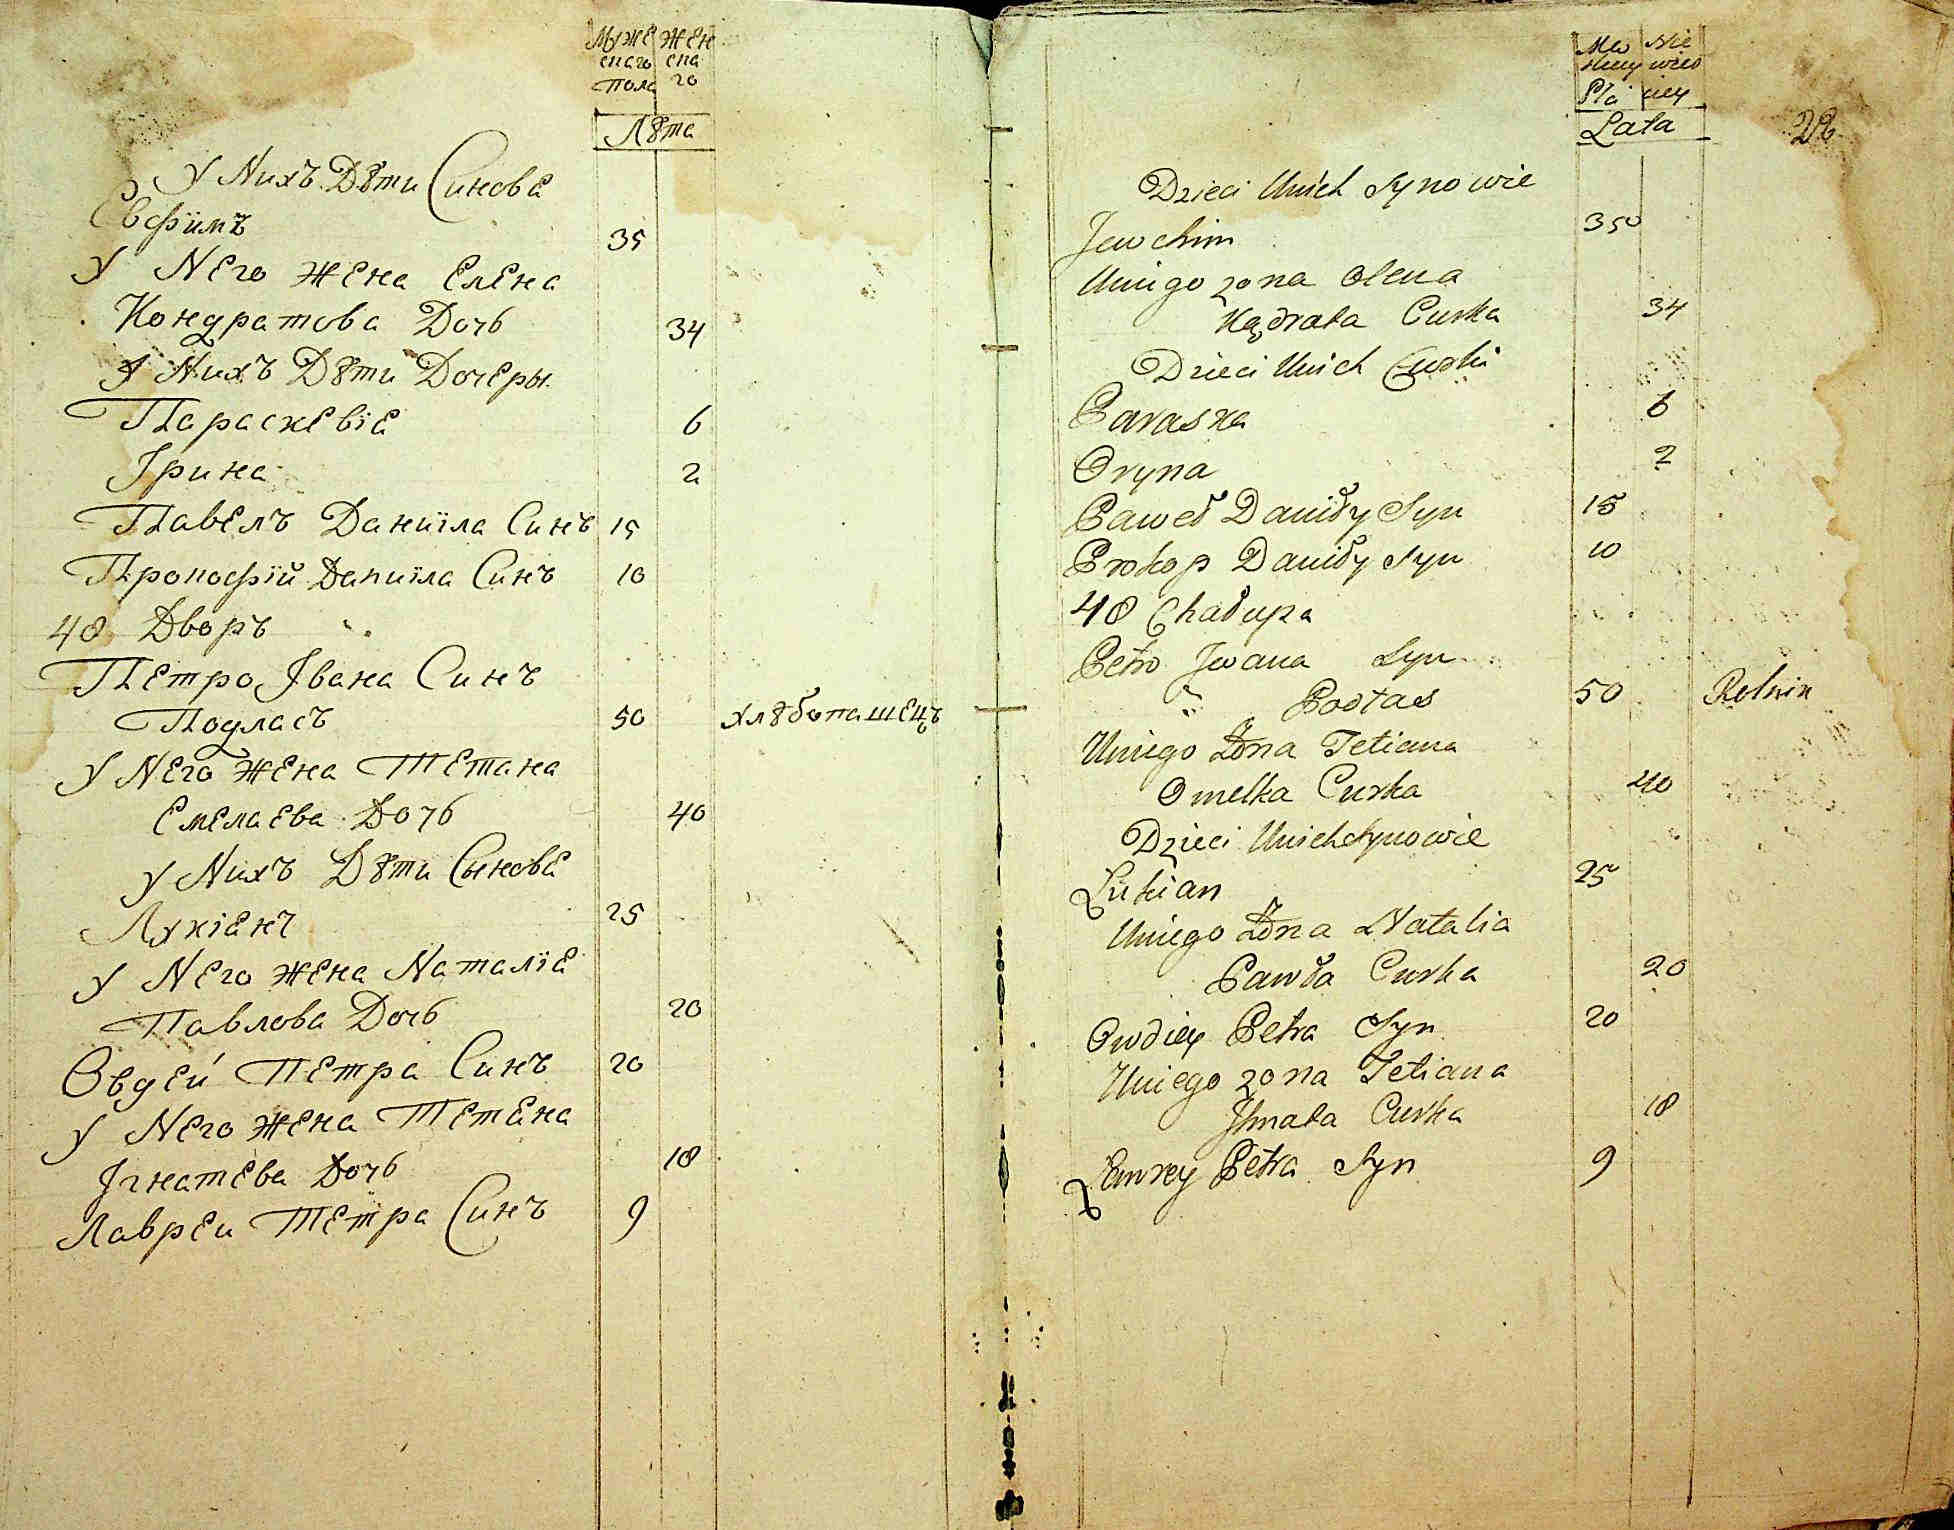 Муже жен
скаго ска
Пола го
Лѣта
У Нихъ Дѣти Синовѣ
Евфимъ 35
У Него жена Елена
Кондратова Дочь 34
У Нихъ Дѣти Дочеры
Параскевіѣ 6
Ірина 2
Павелъ Даниїла Синъ 15
Прокофїй Даниїла Синъ 10
48 Дворъ
Петро Івана Синъ
Подласъ 50 хлѣбопашецъ
У Него жена Тетана
Емелаева Дочь 40
У Нихъ Дѣти Сыновѣ
Лукіанъ 25
У Него жена Наталїѣ
Павлова Дочь 20
Овдей Петра Синъ 20
У Него жена Тетѣна
Ігнатева Дочь 18
Лаврей Петра Синъ 9
Męs Nie
kiey wies
Płci ciey
Lata
28
Dzieci Unich Synowie
Jewchim 35
Uniego zona Olena
Kądrata Curka 34
Dzieci Unich Curki
Paraska 6
Oryna 2
Paweł Daniły Syn 15
Prokop Daniły Syn 10
48 Chałupa
Petro Jwana Syn
Podłas 50 Rolnik
Uniego Żona Tetiana
Omelka Curka 40
Dzieci Unich Synowie
Lukian 25
Uniego Żona Natalia
Pawła Curka 20
Owdiey Petra Syn 20
Uniego zona Tetiana
Jhnata Curka 18
Lawrey Petra Syn 9